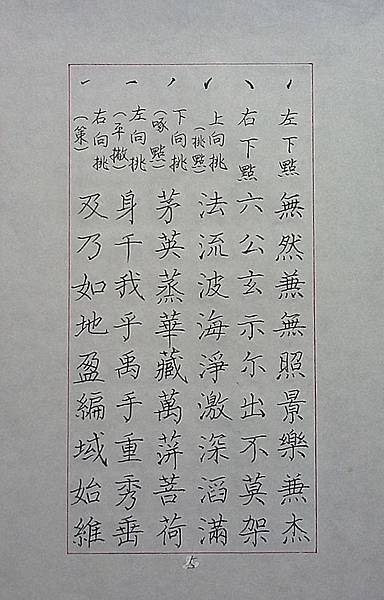 左下點 無然兼無照景樂兼杰
右下點 六公玄示尔出不莫架
上向挑(挑點) 法流波海淨激深滔滿
下向挑(啄點) 茅英蒸華藏萬菩荷
左向挑(平撇) 身千我乎禹手重秀垂
右向挑(策) 及乃如地盈編域始維